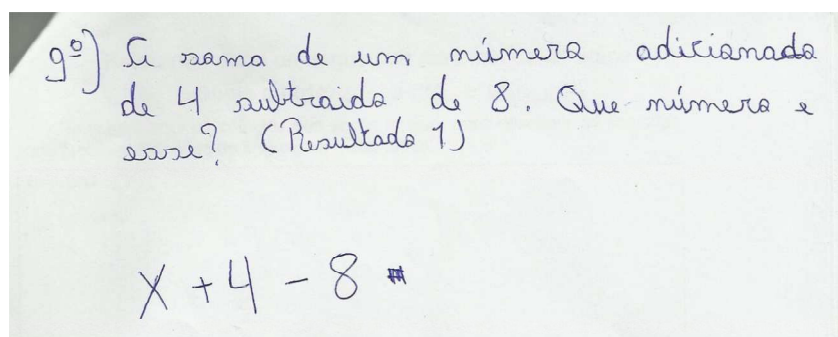 9º) A soma de um número adicionado
de 4 subtraido de 8. Que número e
esse? (Resultado 1)
x + 4 - 8 =